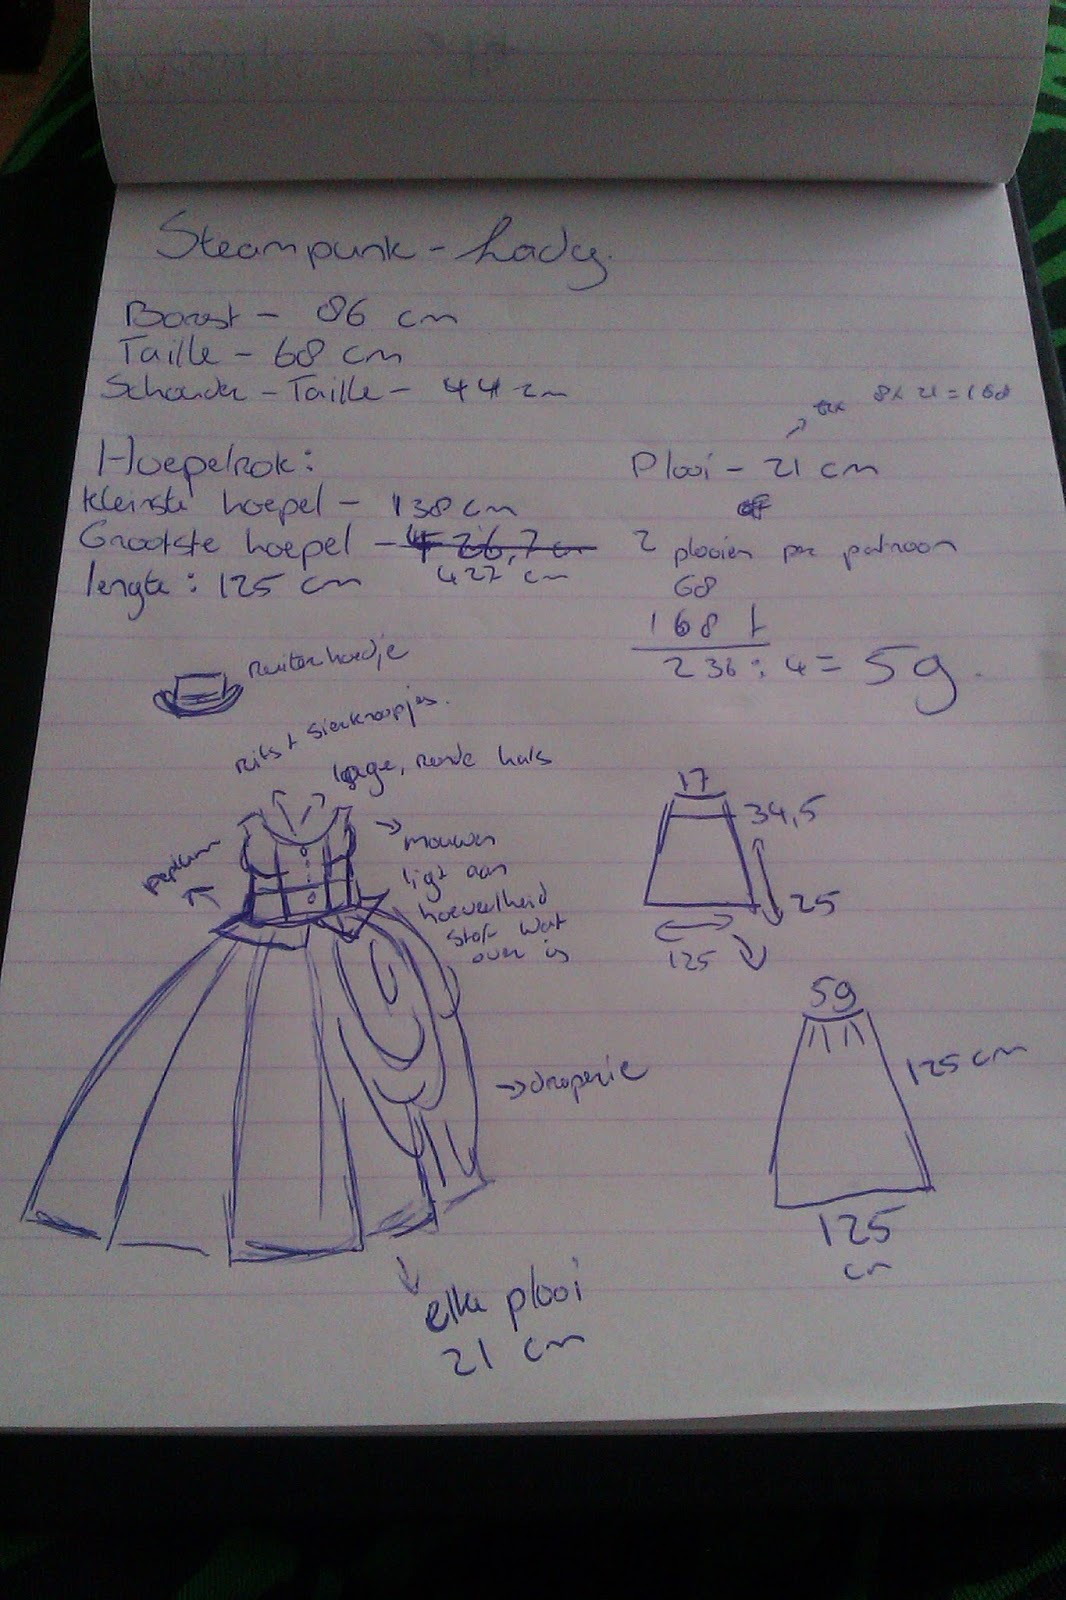 Steampunk - Lady.
Borst - 86 cm
Taille - 68 cm
Schouder - Taille - 44 cm
8 x 21 = 168
Hoepelrok:
Plooi - 21 cm
Kleinste hoepel - 138 cm
Grootste hoepel - 426,7 cm
427 cm
2 plooien per patroon
lengte : 125 cm
68
168 +
236 : 4 = 59.
Ruiterhoedje
rits + sierknoopjes.
lage, ronde hals
17
34,5
peplum
mouwen
ligt aan
hoeveelheid
stof wat
over is
25
125
59
125 cm
draperie
125
cm
elke plooi
21 cm